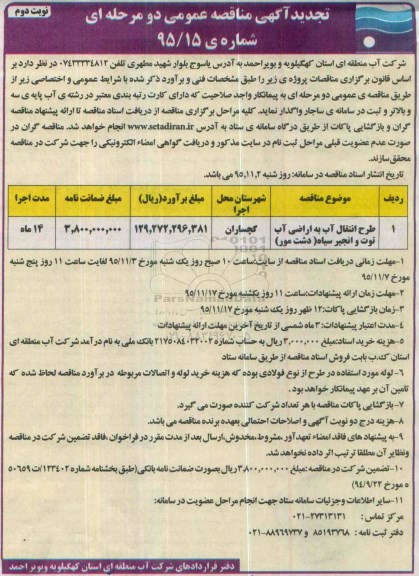 نوبت دوم
تجدیدآگهی مناقصه عمومی دو مرحله ای
شماره ی ۹۵/۱۵
شرکت آب منطقه ای استان کهگیلویه و بویراحمد به آدرس یاسوج بلوار شهید مطهری تلفن ۰۷۴۳۳۳۳۴۸۱۲ در نظر دارد بر
اساس قانون برگزاری مناقصات پروژه ی زیر را طبق مشخصات فنی و برآورد ذکر شده با شرایط عمومی و اختصاصی زیر از
طریق مناقصه ی عمومی دو مرحله ای به پیمانکار واجد صلاحیت که دارای کارت رتبه بندی معتبر در رشته ی آب پایه ی سه
و بالاتر و ثبت در سامانه ی ساجار واگذار نماید. کلیه مراحل برگزاری مناقصه از دریافت اسناد مناقصه تا ارائه پیشنهاد مناقصه
گران و بازگشایی پاکات از طریق درگاه سامانه ی ستاد به آدرس www.setadiran.ir انجام خواهد شد. مناقصه گران در
صورت عدم عضویت قبلی مراحل ثبت نام در سایت مذکور و دریافت گواهی امضاء الکترونیکی را جهت شرکت در مناقصه
محقق سازند.
تاریخ انتشار اسناد مناقصه در سامانه: روز شنبه ۹۵,۱۱,۲ می باشد.
ردیف موضوع مناقصه شهرستان محل اجرا مبلغ برآورد(ریال) مبلغ ضمانت نامه مدت اجرا
۱ طرح انتقال آب به اراضی آب توت و انجیر سیاه( دشت مور) گچساران ۱۲۹,۲۷۲,۲۹۶,۳۸۱ ۳,۸۰۰,۰۰۰,۰۰۰ ۱۴ ماه
۱-مهلت زمانی دریافت اسناد مناقصه از سایت:ساعت ۱۰ صبح روز یک شنبه مورخ ۹۵/۱۱/۳ لغایت ساعت ۱۱ روز پنج شنبه
مورخ ۹۵/۱۱/۷
۲-مهلت زمان ارائه پیشنهادات:ساعت ۱۱ روز یکشنبه مورخ ۹۵/۱۱/۱۷
۳-زمان بازگشایی پاکات:۱۲ ظهر روز یک شنبه مورخ ۹۵/۱۱/۱۷
۴-مدت اعتبار پیشنهادات:۳ ماه شمسی از تاریخ آخرین مهلت ارائه پیشنهادات
۵-هزینه خرید اسناد:مبلغ ۳,۰۰۰,۰۰۰ ریال به حساب شماره ۲۱۷۵۰۸۴۰۳۲۰۰۲ بانک ملی به نام درآمد شرکت آب منطقه ای
استان ک‌ب بابت فروش اسناد مناقصه از طریق سامانه ستاد
۶-لوله مورد استفاده در طرح از نوع فولادی بوده که هزینه خرید لوله و اتصالات مربوطه در برآورد مناقصه لحاظ شده که
تامین آن بر عهد پیمانکار خواهد بود.
۷-بازگشایی پاکات مناقصه با هر تعداد شرکت کننده صورت می گیرد.
۸-هزینه درج دو نوبت آگهی و اصلاحات احتمالی بعهده برنده مناقصه می باشد.
۹-به پیشنهاد های فاقد امضاء تعهدآور،مشروط،مخدوش،ارسال بعد از مدت مقرر در فراخوان،فاقد تضمین شرکت در مناقصه
و نظایر آن مطلقا ترتیب اثر داده نخواهد شد.
۱۰-تضمین شرکت در مناقصه:مبلغ ۳,۸۰۰,۰۰۰,۰۰۰ ریال بصورت ضمانت نامه بانکی(طبق بخشنامه شماره ۱۲۳۴۰۲/ت۵۰۶۵۹
ه مورخ ۹۴/۹/۲۲)
۱۱-سایر اطلاعات و جزئیات سامانه ستاد جهت انجام مراحل عضویت در سامانه:
مرکز تماس : ۲۷۳۱۳۱۳۱-۰۲۱
دفتر ثبت نامه : ۸۵۱۹۳۷۶۸ و ۸۸۹۶۹۷۳۷-۰۲۱
دفتر قراردادهای شرکت آب منطقه ای استان کهگیلویه و بویراحمد